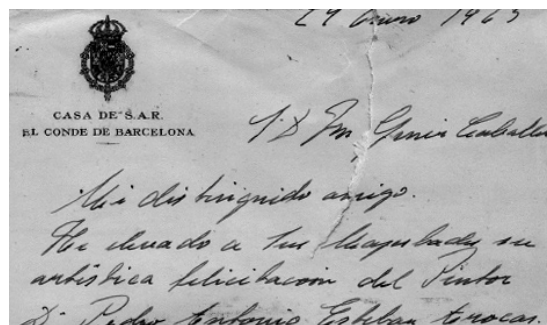 29 Enero 1963
CASA DE S.A.R.
EL CONDE DE BARCELONA
S. D. García Caballero
Mi distinguido amigo.
He elevado a Sus Majestades su
artística felicitación del Pintor
D. Pedro Antonio Esteban